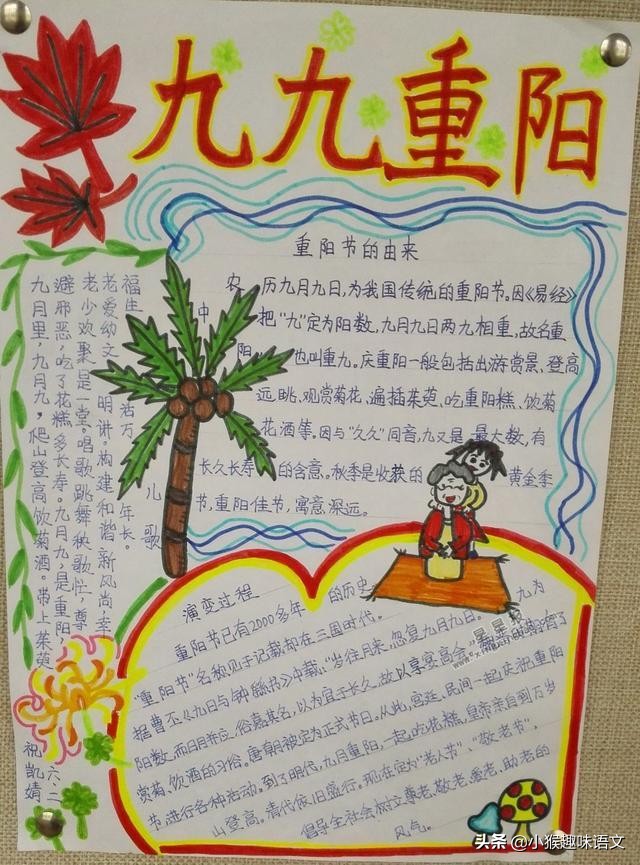 九九重阳
重阳节的由来
农历九月九日,为我国传统的重阳节。因《易经》
中把“九”定为阳数,九月九日两九相重,故名重
阳,也叫重九。庆重阳一般包括出游赏景、登高
远眺、观赏菊花、遍插茱萸、吃重阳糕、饮菊
花酒等。因与“久久”同音,九又是最大数,有
长久长寿的含意。秋季是收获的黄金季
节,重阳佳节,寓意深远。
儿歌
九月里,九月九,爬山登高饮菊酒。带上茱萸
避邪恶,吃了花糕多长寿。九月九,是重阳
老少欢聚是一堂。唱歌跳舞秧歌忙,尊
老爱幼文明讲。构建和谐新风尚,幸
福生活万年长。
演变过程
重阳节已有2000多年的历史
“重阳”名称见于记载却在三国时代。
据曹丕《九日与钟繇书》中载:“岁往月来,忽复九月九日。九为
阳数,而日月并应,俗嘉其名,以为宜于长久,故以享宴高会。”
赏菊、饮酒的习俗。唐朝被定为正式节日。从此,宫廷、民间一起庆祝重阳
节,进行各种活动。到了明代,九月重阳,一起吃花糕,皇帝亲自到万岁
山登高。清代依旧盛行。现在定为“老人节”、“敬老节”,
倡导全社会树立尊老、敬老、爱老、助老的
风气。
六.二
祝凯婧
星星报
头条@小猴趣味语文